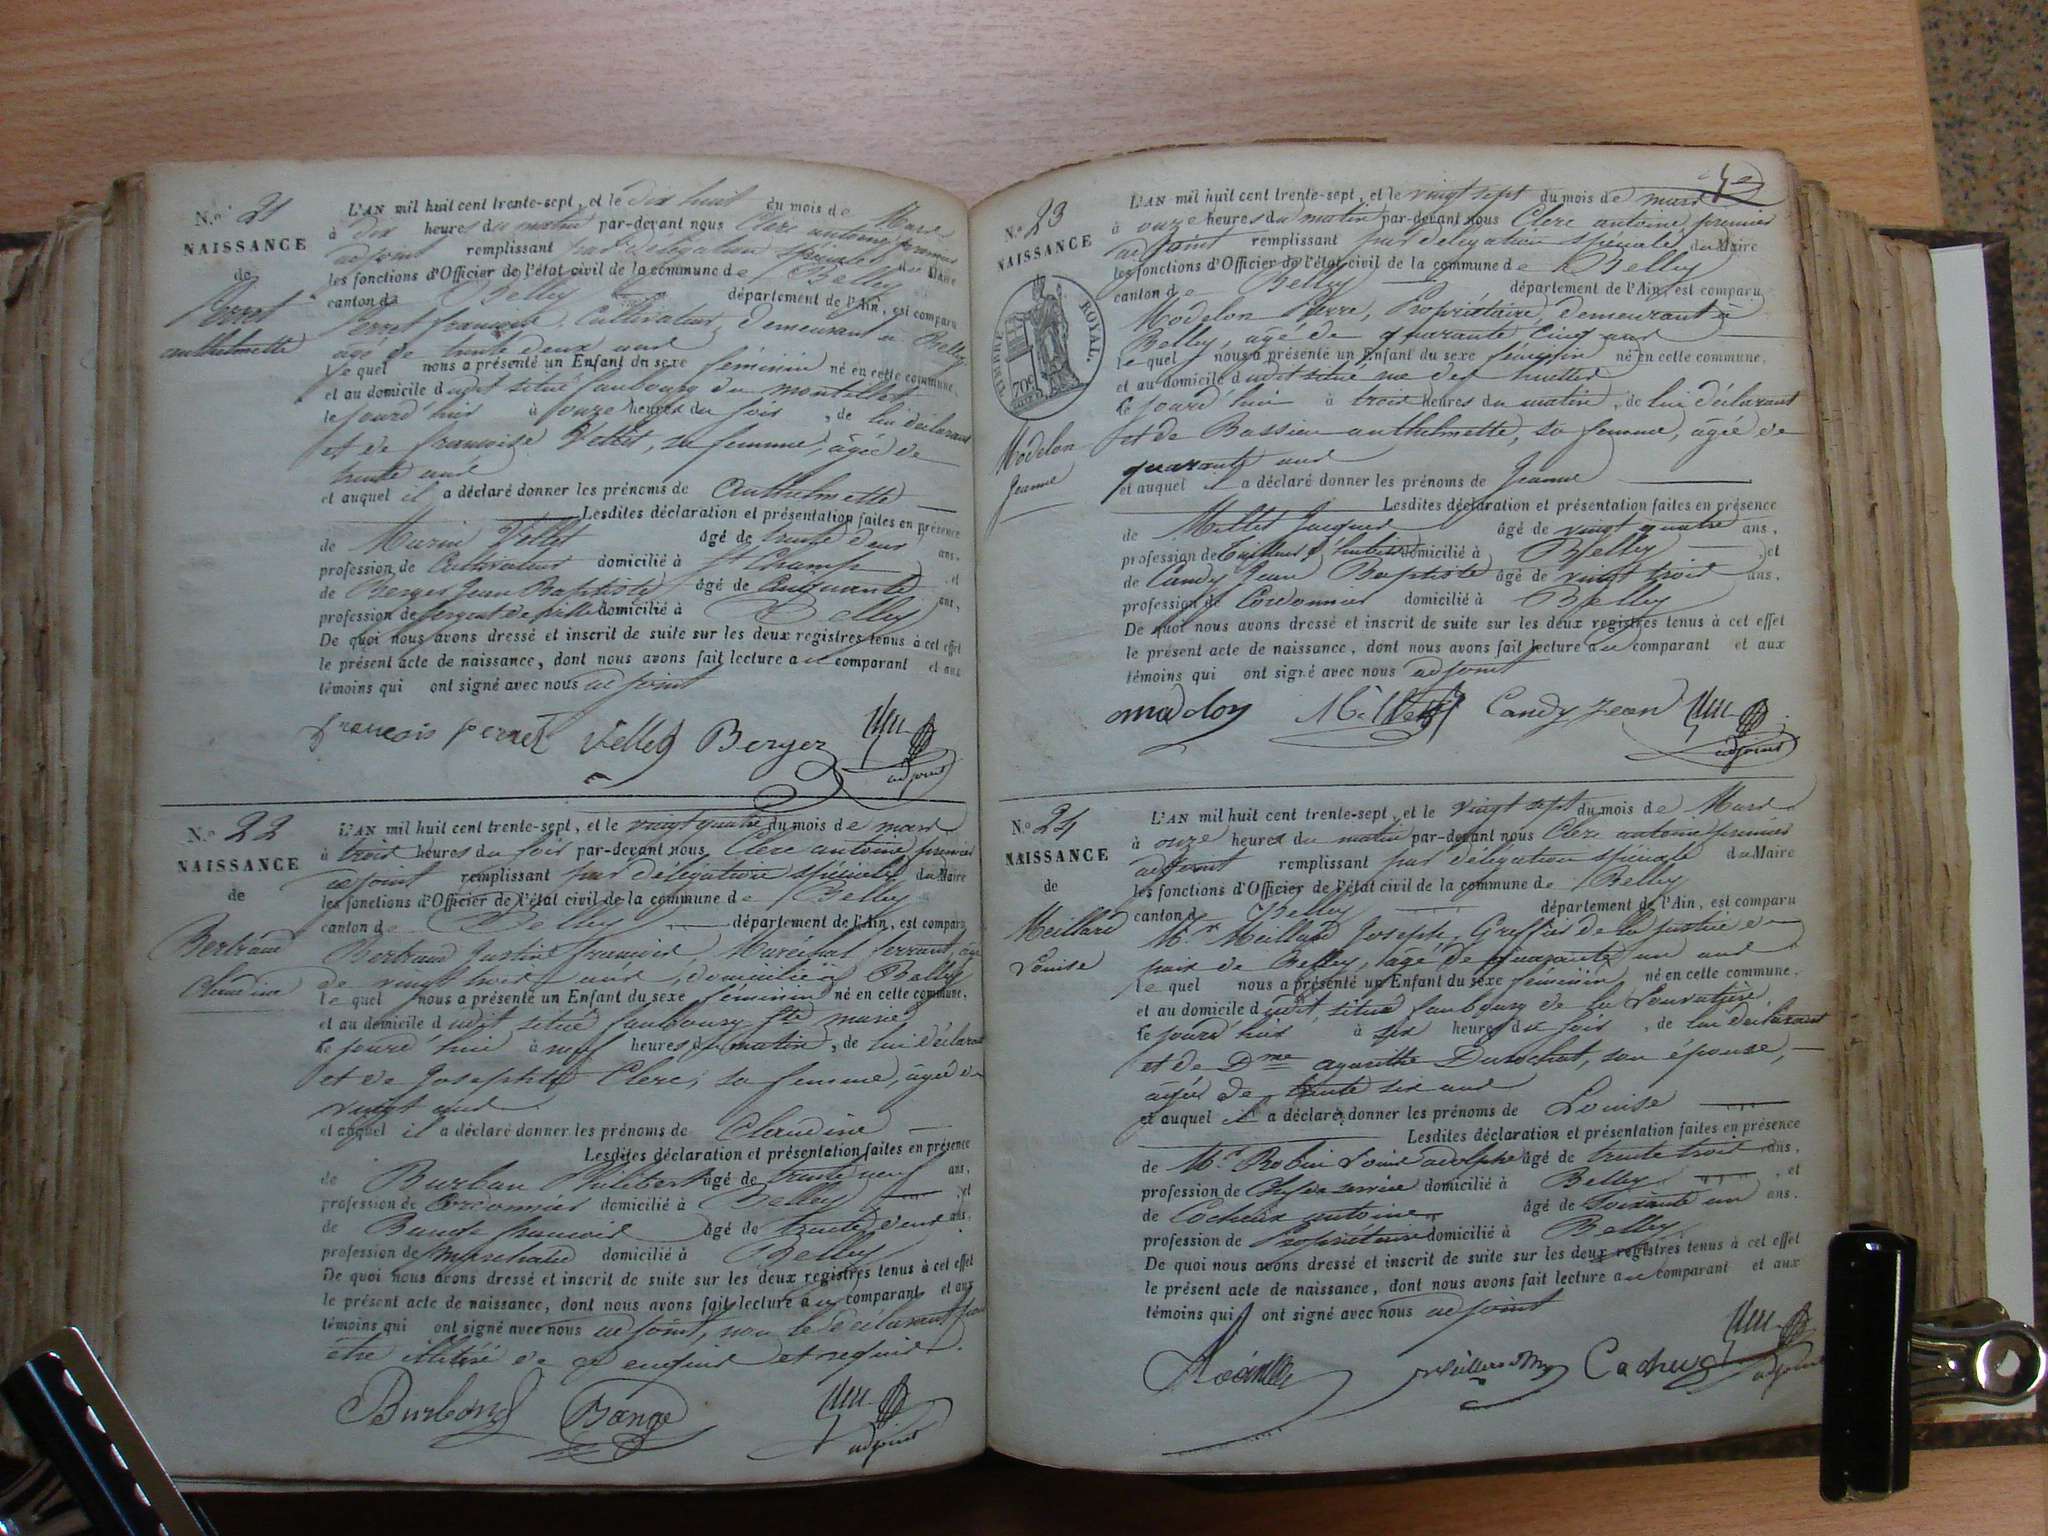 N.º 21
NAISSANCE
de
Perret
anthelmette
L'AN mil huit cent trente-sept, et le dix huit du mois de Mars
à dix heures du matin par-devant nous Clerc antoine premier
adjoint remplissant par délégation spéciale du Maire
les fonctions d'Officier de l'état civil de la commune de Belley
canton de Belley département de l'Ain, est comparu
Perret françois, Cultivateur, demeurant à Belley
âgé de trente deux ans
le quel nous a présenté un Enfant du sexe féminin né en cette commune,
et au domicile dudit situé faubourg du
le jourd'hui à onze heures du soir, de lui déclarant
et de françoise Vellet, sa femme, âgée de
trente ans
et auquel il a déclaré donner les prénoms de Anthelmette
Lesdites déclaration et présentation faites en présence
de Marin Vellet âgé de trente deux ans,
profession de Cultivateur domicilié à St Champ, et
de Berger Jean Baptiste âgé de Cinquante ans,
profession de sergent de ville domicilié à Belley
De quoi nous avons dressé et inscrit de suite sur les deux registres tenus à cet effet
le présent acte de naissance, dont nous avons fait lecture au comparant et aux
témoins qui ont signé avec nous adjoint
françois perret Vellet Berger
adjoint
N.º 22
NAISSANCE
de
Bertrand
Claudine
L'AN mil huit cent trente-sept, et le vingt quatre du mois de mars
à trois heures du soir par-devant nous Clerc antoine premier
adjoint remplissant par délégation spéciale du Maire
les fonctions d'Officier de l'état civil de la commune de Belley
canton de Belley département de l'Ain, est comparu
Bertrand Justin françois, Maréchal ferrant, âgé
de vingt trois ans, domicilié à Belley
le quel nous a présenté un Enfant du sexe féminin né en cette commune,
et au domicile dudit situé faubourg Ste marie
le jourd'hui à neuf heures du matin, de lui déclarant
et de Josephte Clerc, sa femme, âgée de
vingt ans
et auquel il a déclaré donner les prénoms de Claudine
Lesdites déclaration et présentation faites en présence
de Burban Philibert âgé de trente neuf ans,
profession de Cordonnier domicilié à Belley, et
de françois âgé de trente deux ans,
profession de Marchand domicilié à Belley
De quoi nous avons dressé et inscrit de suite sur les deux registres tenus à cet effet
le présent acte de naissance, dont nous avons fait lecture au comparant et aux
témoins qui ont signé avec nous adjoint, non le déclarant pour
être illitéré de ce enquis et requis.
adjoint
N.º 23
NAISSANCE
TIMBRE ROYAL
70c
Modelon
Jeanne
L'AN mil huit cent trente-sept, et le vingt sept du mois de mars
à onze heures du matin par-devant nous Clerc antoine, premier
adjoint remplissant par délégation spéciale du Maire
les fonctions d'Officier de l'état civil de la commune de Belley
canton de Belley département de l'Ain, est comparu
Modelon Pierre, Propriétaire, demeurant à
Belley, âgé de quarante Cinq ans
le quel nous a présenté un Enfant du sexe féminin né en cette commune,
et au domicile dudit situé rue des
le jourd'hui à trois heures du matin, de lui déclarant
et de Bassieu anthelmette, sa femme, âgée de
quarante ans
et auquel il a déclaré donner les prénoms de Jeanne
Lesdites déclaration et présentation faites en présence
de Millet Jacques âgé de vingt quatre ans,
profession de Tailleur d'habits domicilié à Belley, et
de Candy Jean Baptiste âgé de vingt trois ans,
profession de Cordonnier domicilié à Belley
De quoi nous avons dressé et inscrit de suite sur les deux registres tenus à cet effet
le présent acte de naissance, dont nous avons fait lecture au comparant et aux
témoins qui ont signé avec nous adjoint
Millet Candy Jean
adjoint
N.º 24
NAISSANCE
de
Meillard
Louise
L'AN mil huit cent trente-sept, et le vingt sept du mois de Mars
à onze heures du matin par-devant nous Clerc antoine premier
adjoint remplissant par délégation spéciale du Maire
les fonctions d'Officier de l'état civil de la commune de Belley
canton d Belley département de l'Ain, est comparu
Mr Meillard Joseph, Greffier de la justice de
paix de Belley, âgé de quarante un ans
le quel nous a présenté un Enfant du sexe féminin né en cette commune,
et au domicile dudit, situé faubourg de la
le jourd'hui à six heures du soir, de lui déclarant
et de Dme agarithe Durochat, son épouse,
âgée de trente six ans
et auquel il a déclaré donner les prénoms de Louise
Lesdites déclaration et présentation faites en présence
de Mr Robin Louis adolphe âgé de trente trois ans,
profession de domicilié à Belley, et
de antoine âgé de Soixante un ans.
profession de Propriétaire domicilié à Belley
De quoi nous avons dressé et inscrit de suite sur les deux registres tenus à cet effet
le présent acte de naissance, dont nous avons fait lecture au comparant et aux
témoins qui ont signé avec nous adjoint
adjoint